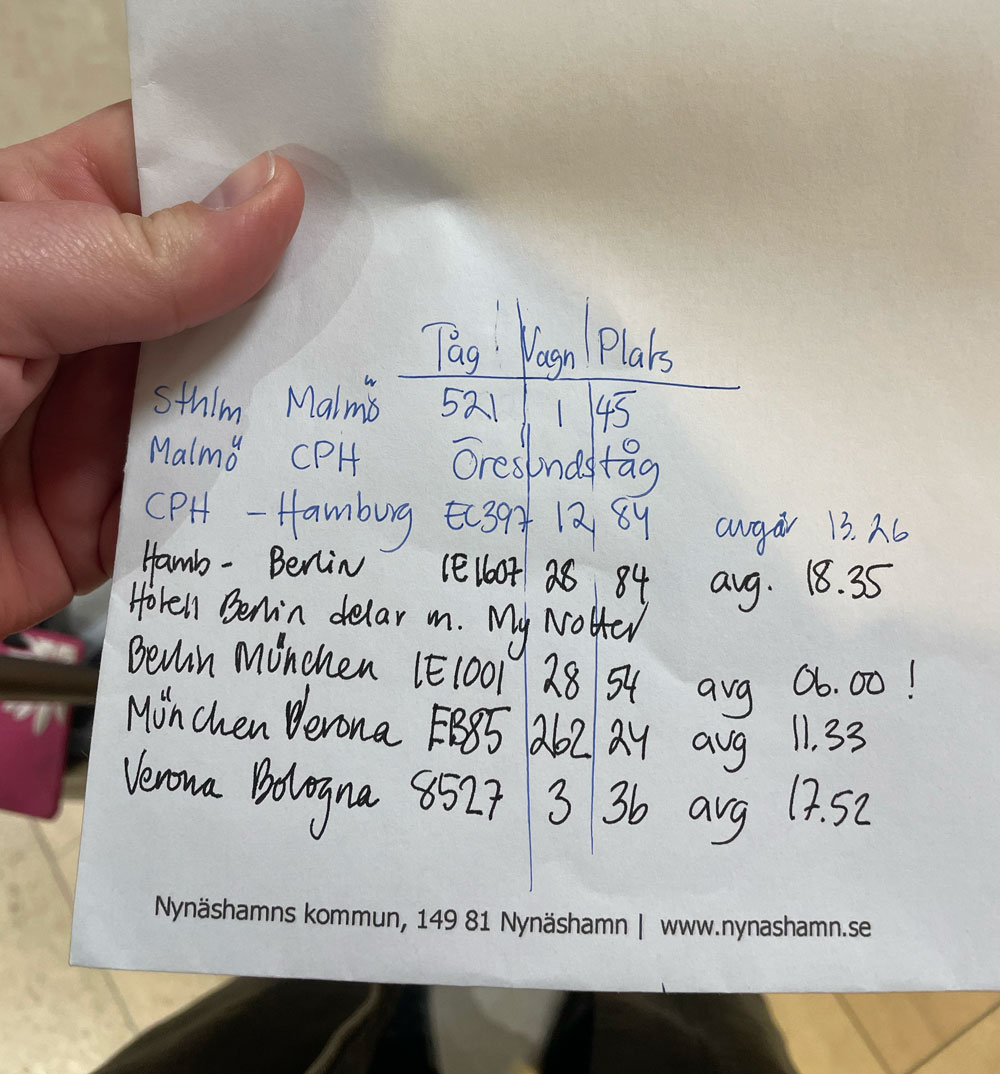 Tåg Vagn Plats
Sthlm Malmö 521 1 45
Malmö CPH Öresundståg
CPH - Hamburg EC397 12 84 avgår 13.26
Hamb - Berlin IE1607 28 84 avg. 18.35
Hotell Berlin delar m. My Notter
Berlin München IE1001 28 54 avg 06.00 !
München Verona EB85 262 24 avg 11.33
Verona Bologna 8527 3 36 avg 17.52
Nynäshamns kommun, 149 81 Nynäshamn | www.nynashamn.se